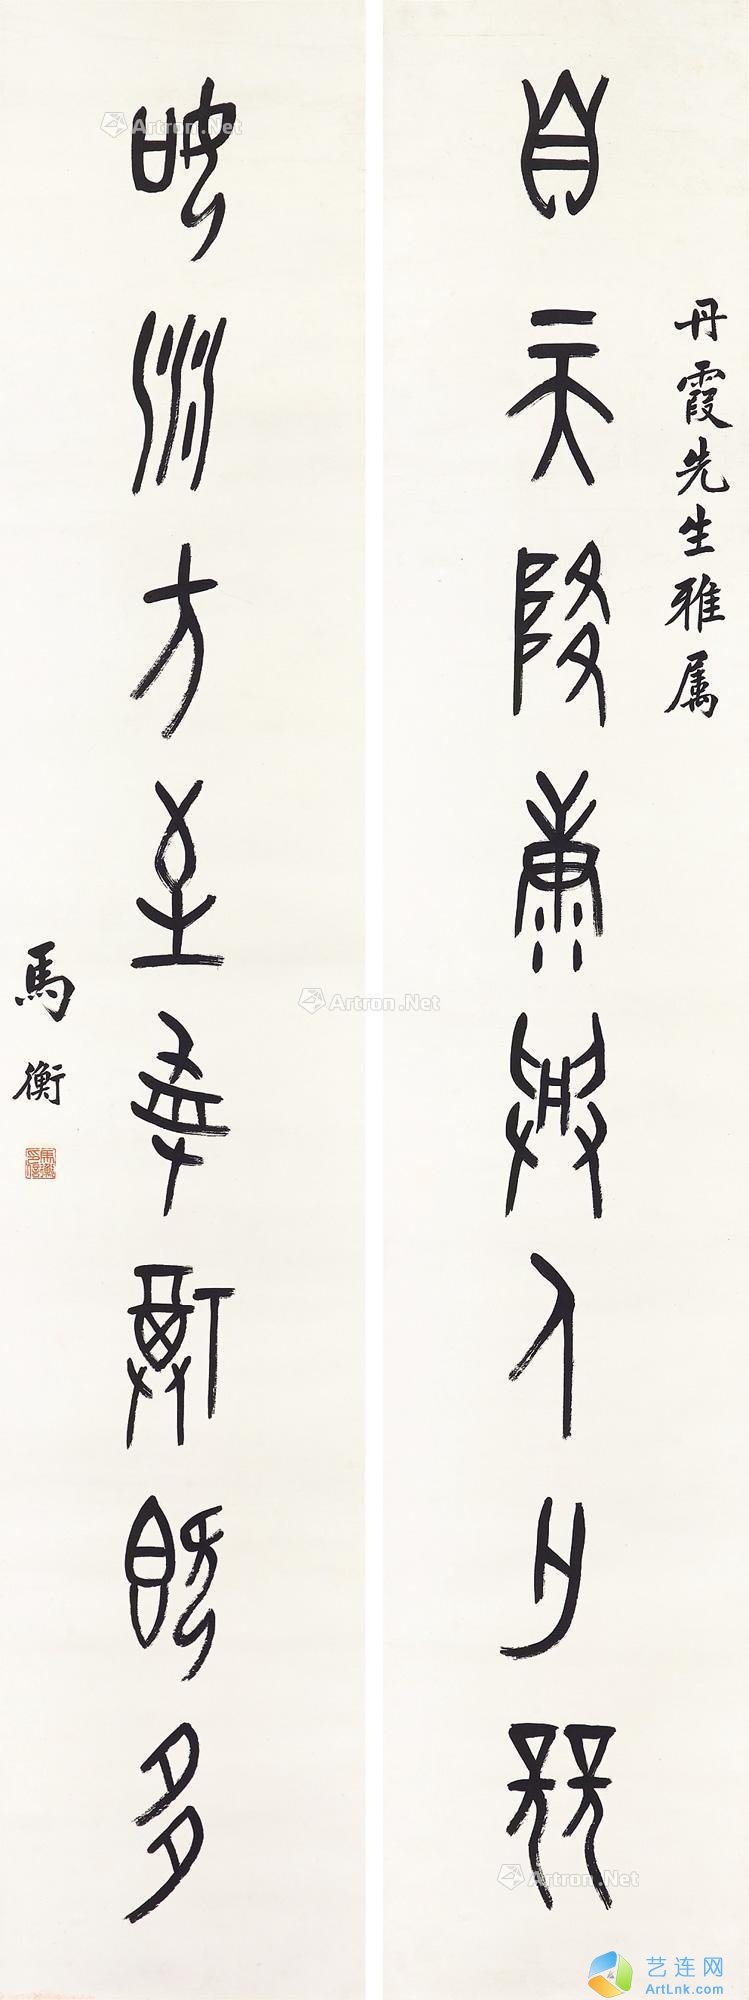 丹霞先生雅属
自天降康與人
如川方至斯既多
馬衡
Artron.Net
Artron.Net
Artron.Net
艺连网
ArtLnk.com